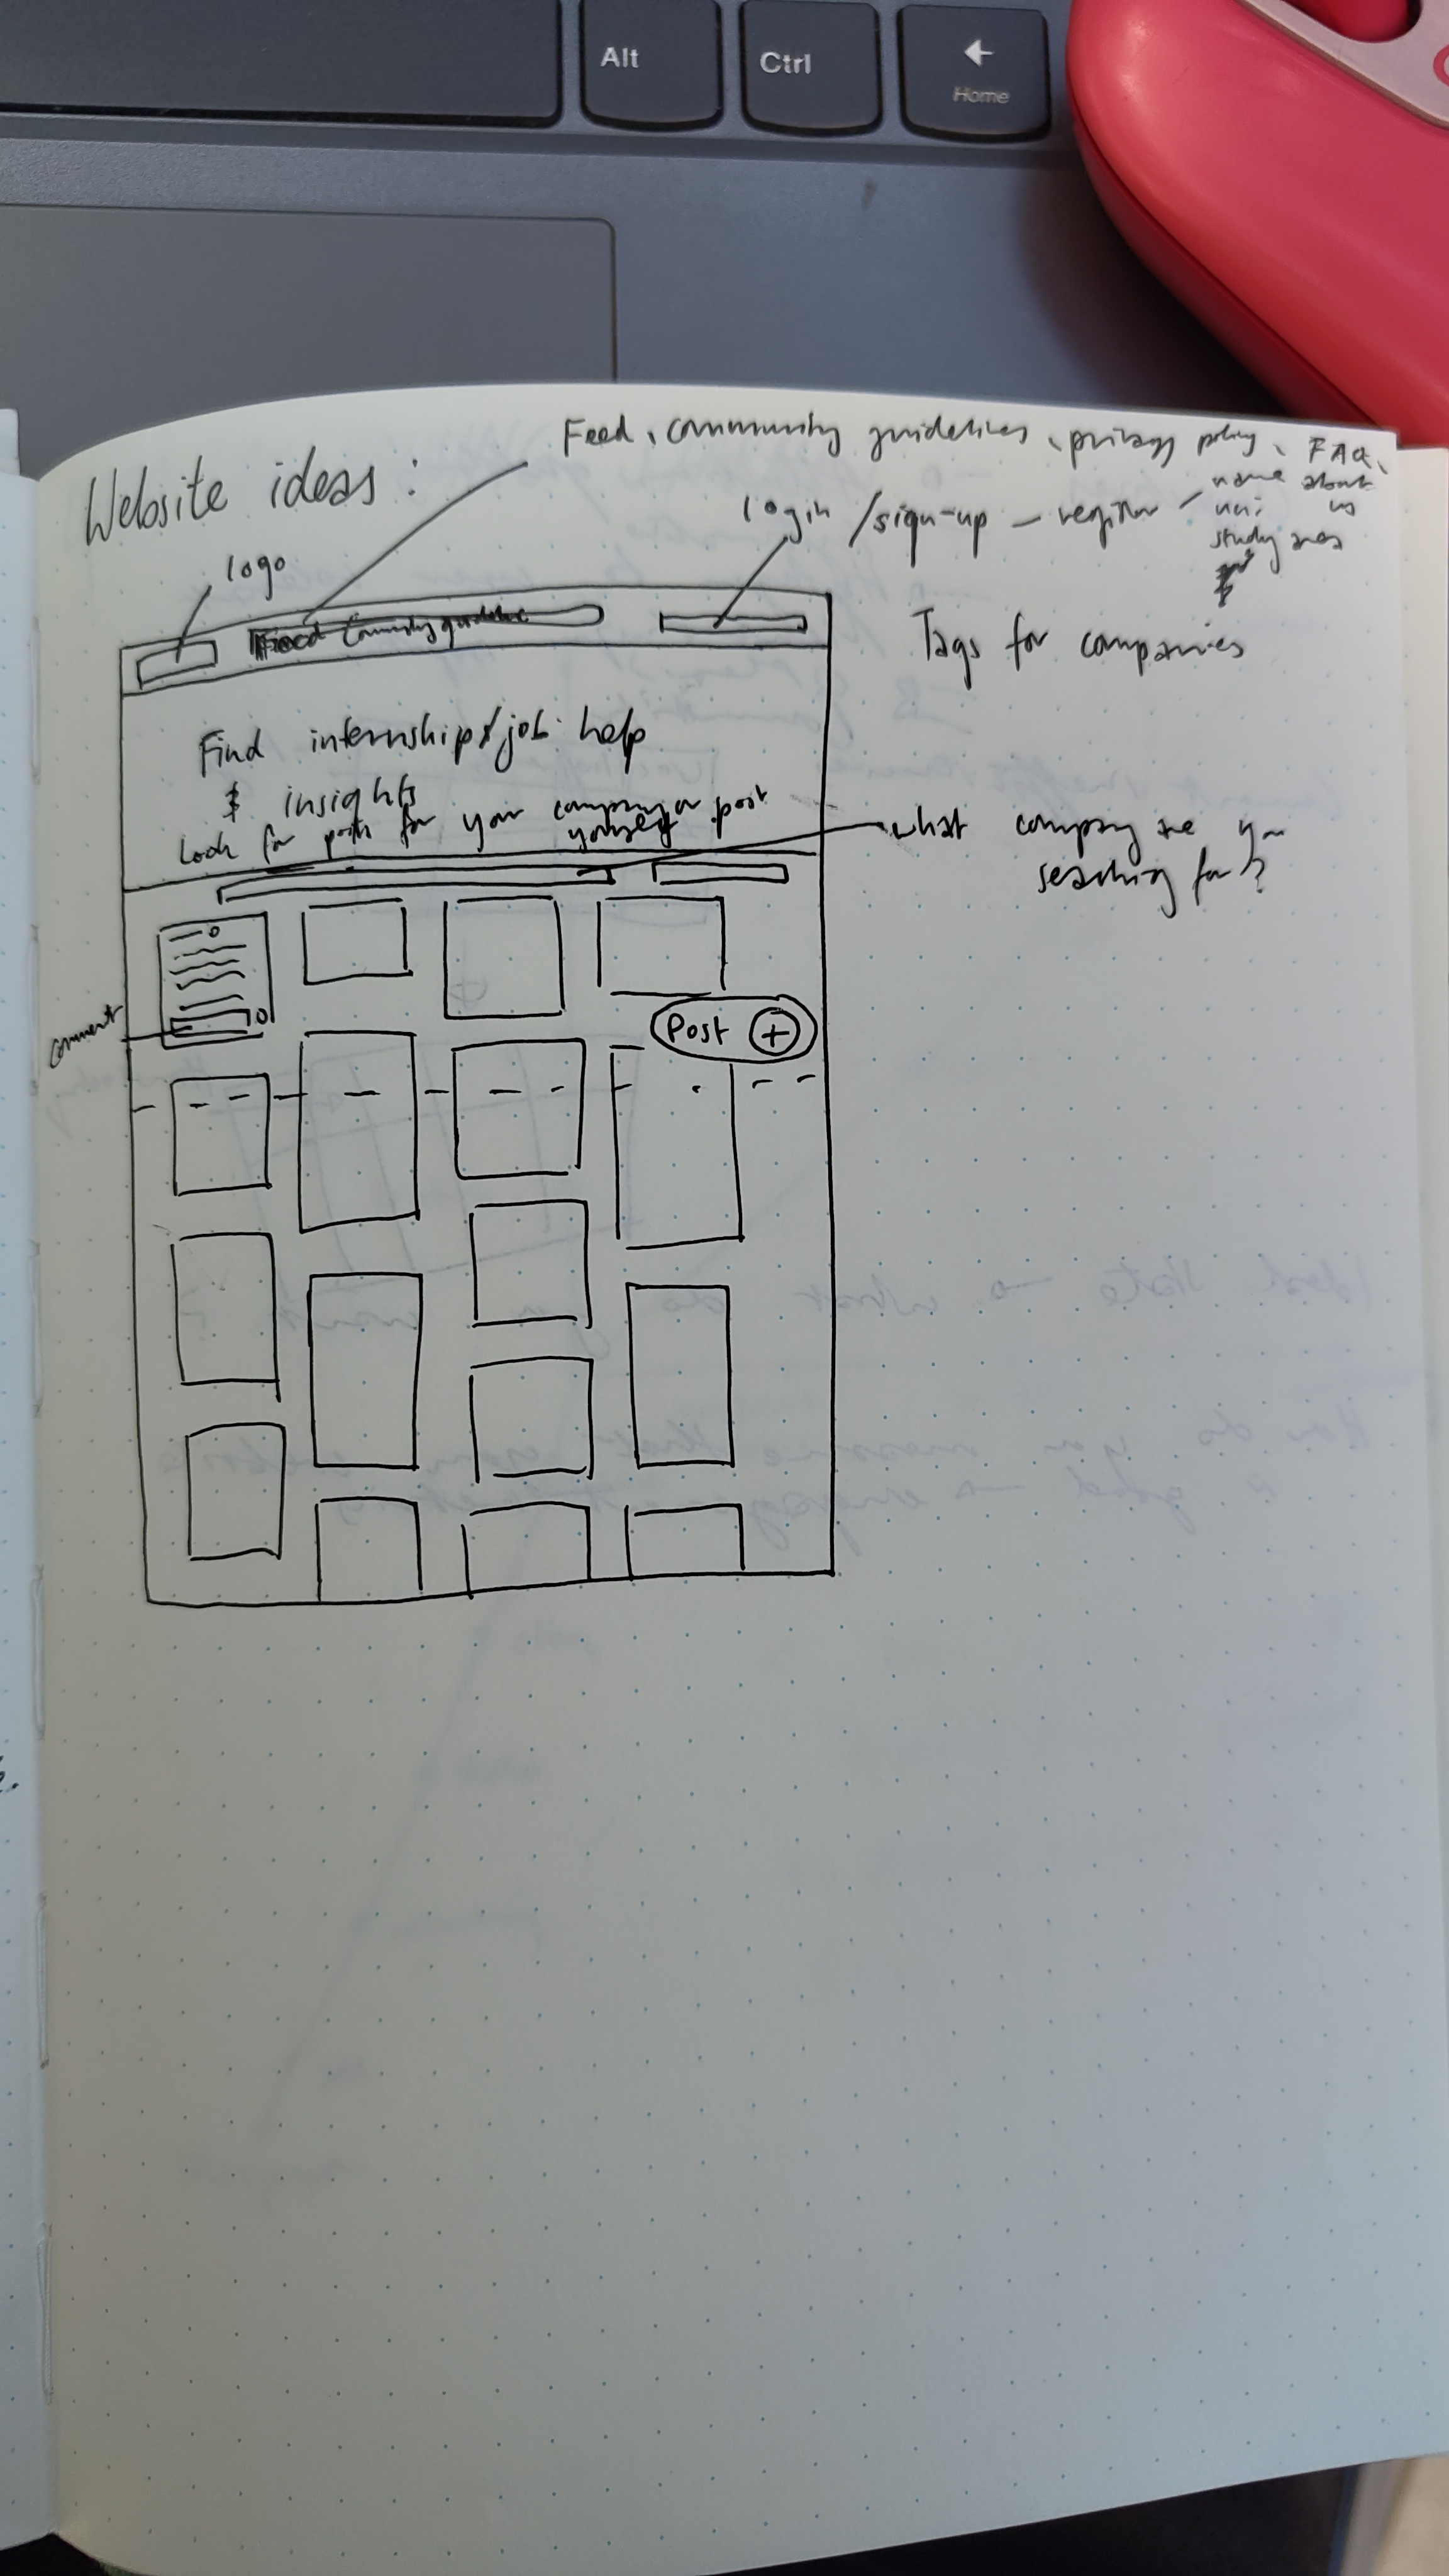 Alt
Ctrl
Home
Feed, community guidelines, privacy policy, FAQ,
about us
Website ideas:
login / sign-up – register – name
uni
study area
logo
Community guideline
Tags for companies
Find internships/job help
& insights
Look for posts for your company or post
yourself
what company are you
searching for?
comment
Post +